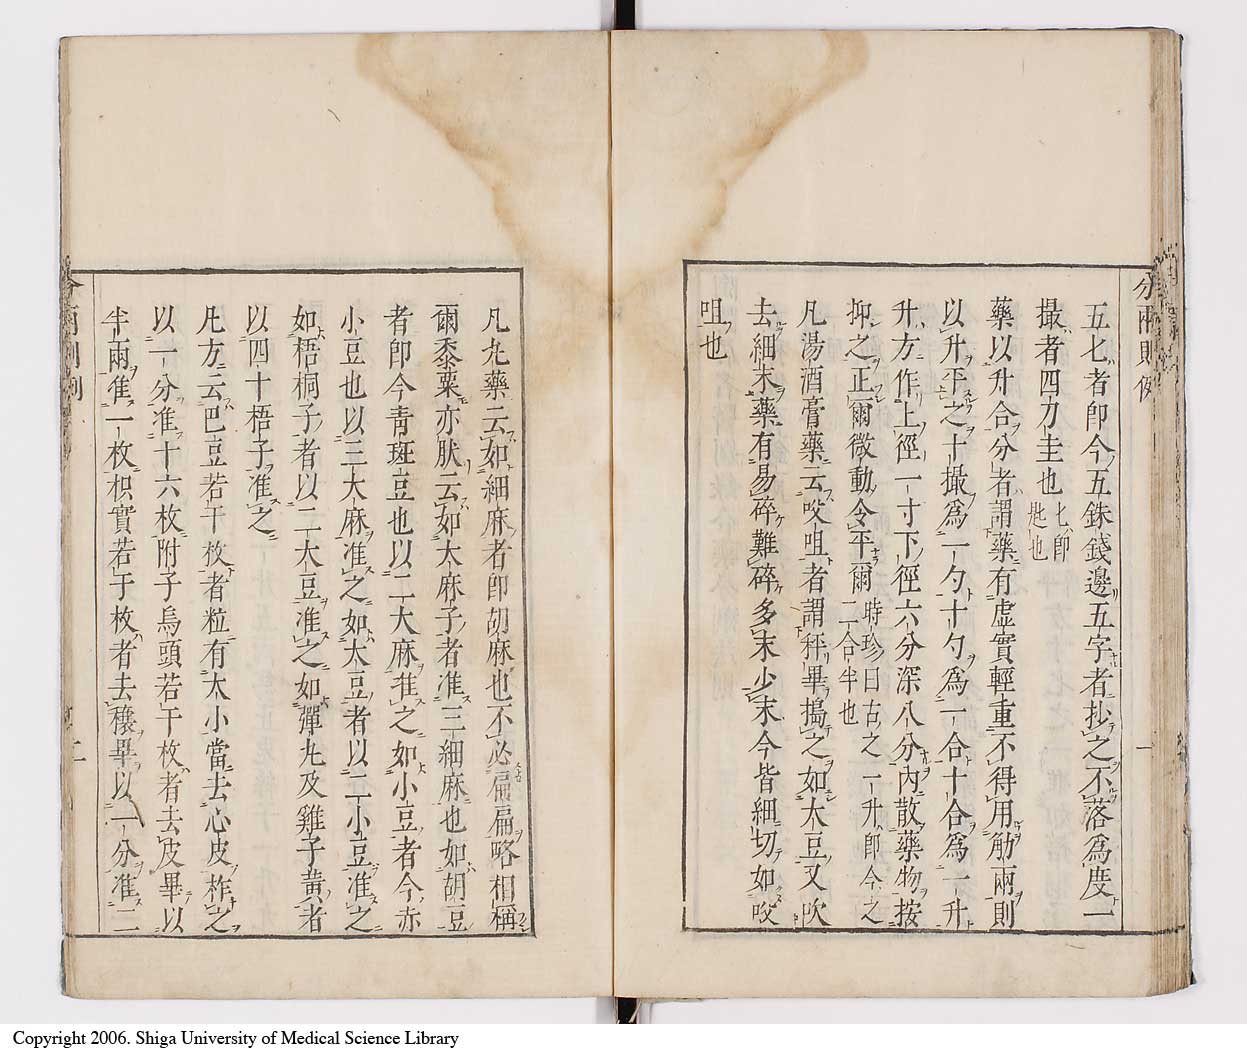 分兩則例
一
五匕者卽今五銖錢邊五字者抄之不落爲度一
撮者四刀圭也匕卽匙也
藥以升合分者謂藥有虛實輕重不得用觔兩則
以升平之十撮爲一勺十勺爲一合十合爲一升
升方作上徑一寸下徑六分深八分內散藥物按
抑之正爾微動令平爾時珍曰古之一升卽今之二合半也
凡湯酒膏藥云㕮咀者謂秤畢搗之如大豆又吹
去細末藥有易碎難碎多末少末今皆細切如㕮
咀也
凡丸藥云如細麻者卽胡麻也不必扁扁略相稱
爾黍粟亦肰云如大麻子者准三細麻也如胡豆
者卽今靑斑豆也以二大麻准之如小豆者今赤
小豆也以三大麻准之如大豆者以二小豆准之
如梧桐子者以二大豆准之如彈丸及雞子黃者
以四十梧子准之
凡方云巴豆若干枚者粒有大小當去心皮秤之
以一分准十六枚附子烏頭若干枚者去皮畢以
半兩准一枚枳實若干枚者去穰畢以一分准二
二